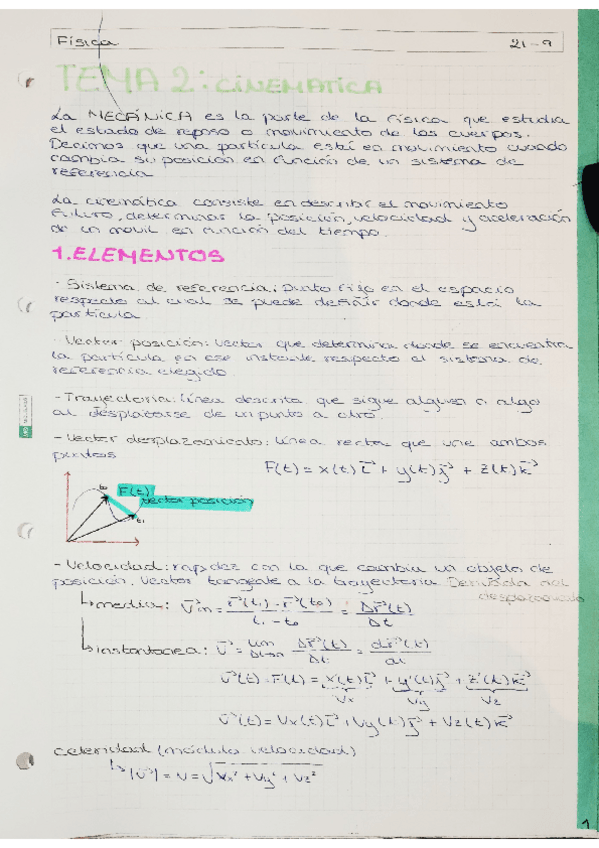 Física 21-9
TEMA 2: CINEMATICA
La MECÁNICA es la parte de la física que estudia
el estado de reposo o movimiento de los cuerpos.
Decimos que una partícula está en movimiento cuando
cambia su posición en función de un sistema de
referencia
La cinemática consiste en describir el movimiento
futuro, determinar la posición, velocidad y aceleración
de un movil en función del tiempo.
1. ELEMENTOS
- Sistema de referencia: punto fijo en el espacio
respecto al cual se puede definir donde está la
partícula
- Vector posición: vector que determina donde se encuentra
la partícula en ese instante respecto al sistema de
referencia elegido.
- Trayectoria: línea descrita que sigue alguien o algo
al desplazarse de un punto a otro.
- Vector desplazamiento: línea recta que une ambos
puntos
r⃗(t) = x(t) i⃗ + y(t) j⃗ + z(t) k⃗
t₀ r(t)
vector posición
t₁
- Velocidad: rapidez con la que cambia un objeto de
posición. Vector tangente a la trayectoria. Derivada del
desplazamiento
↳ media: v⃗m = r⃗(t₁) - r⃗(t₀) / t₁ - t₀ = Δr⃗(t) / Δt
↳ instantanea: v⃗ = lim Δt→0 Δr⃗(t) / Δt = dr⃗(t) / dt
v⃗(t) = r⃗'(t) = x'(t) i⃗ + y'(t) j⃗ + z'(t) k⃗
Vx Vy Vz
v⃗(t) = Vx(t) i⃗ + Vy(t) j⃗ + Vz(t) k⃗
celeridad (módulo velocidad)
↳ |v⃗| = v = √Vx² + Vy² + Vz²
1